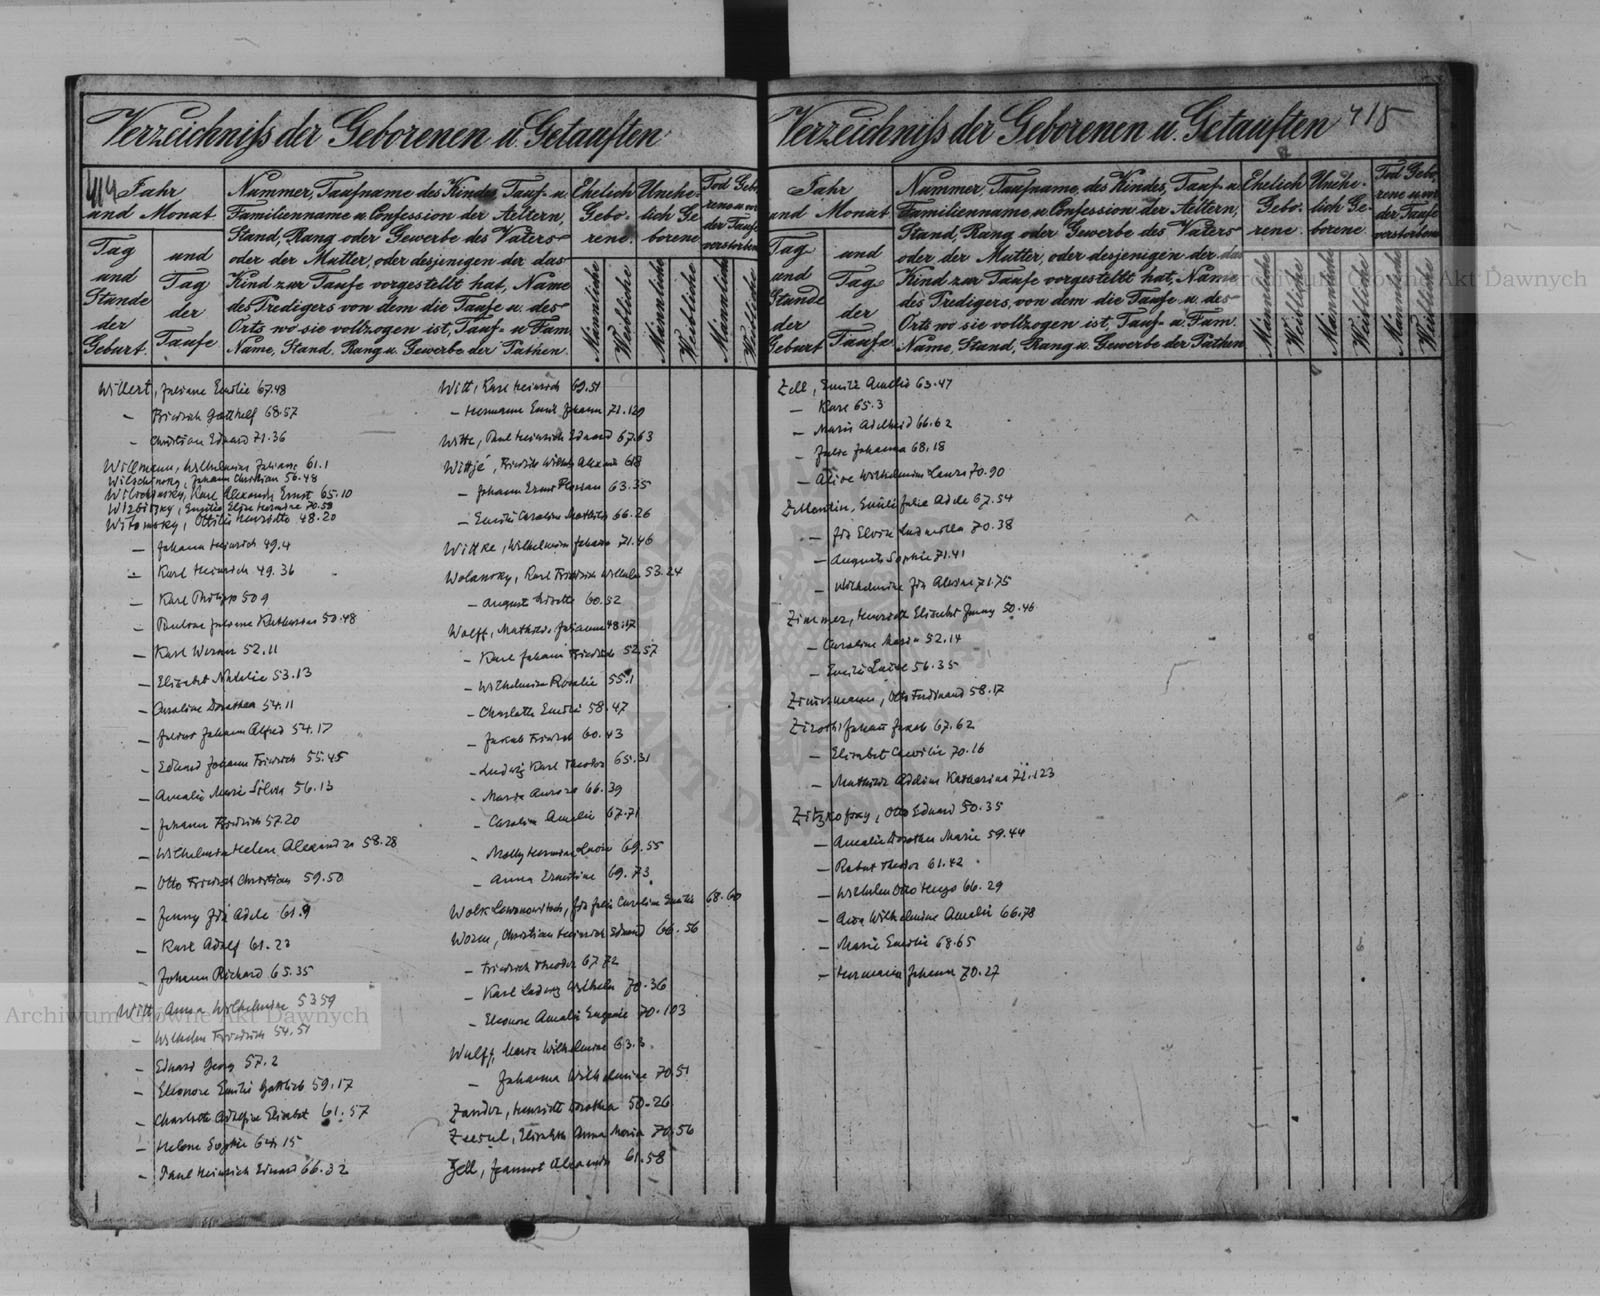 Verzeichniß der Geborenen u. Getauften
414
Jahr
und Monat
Tag
und
Stunde
der
Geburt.
und
Tag
der
Taufe
Nummer, Taufname des Kindes, Tauf- u
Familienname u. Confession der Aeltern,
Stand, Rang oder Gewerbe des Vaters
oder der Mutter, oder desjenigen der das
Kind zur Taufe vorgestellt hat, Name
des Predigers von dem die Taufe u. des
Orts wo sie vollzogen ist, Tauf- u Fam.
Name, Stand, Rang u. Gewerbe der Pathen.
Ehelich
Gebo-
rene.
Unehe-
lich Ge
borene
Tod Gebo
rene u. vor
der Taufe
verstorben
Männliche
Weibliche
Männliche
Weibliche
Männliche
Weibliche
Willert, Juliane Emilie 67.48
— Friedrich Gotthelf 68.57
— Christian Eduard 71.36
Willmann, Wilhelmine Juliane 61.1
Wilschinsky, Johann Christian 56.48
Wilschinsky, Karl Alexander Ernst 65.10
Wirbitzky, Emilie Elise Hermine 70.58
Witomsky, Ottilie Henriette 48.20
— Johann Heinrich 49.4
— Karl Heinrich 49.36
— Karl Philipp 50 9
— Pauline Juliane Katharina 50.48
— Karl Werner 52.11
— Elisabet Natalie 53.13
— Caroline Dorothea 54.11
— Julius Johann Alfred 54.17
— Eduard Johann Friedrich 55.45
— Amalie Marie Silvia 56.13
— Johann Friedrich 57.20
— Wilhelmine Helene Alexandra 58.28
— Otto Friedrich Christian 59.50
— Jenny Ida Adele 61.9
— Karl Adolf 61.23
— Johann Richard 65.35
Witt, Anna Wilhelmine 53 59
— Wilhelm Friedrich 54.51
— Eduard Georg 57.2
— Eleonore Emilie Gottlieb 59.17
— Charlotte Adolfine Elisabet 61.57
— Helene Sophie 64.15
— Paul Heinrich Eduard 66.32
Witt, Karl Heinrich 69.51
— Hermann Emil Johann 71.120
Witte, Paul Heinrich Eduard 67.63
Wittje, Friedrich Wilhelm
— Johann Ernst Florian 63.35
— Emilie Caroline Mathilde 66.26
Wittke, Wilhelmine Johanna 71.46
Wolansky, Karl Friedrich Wilhelm 53.24
— August 60.52
Wolff, Mathilde Juliane 48.17
— Karl Johann Friedrich 52.57
— Wilhelmine Rosalie 55.1
— Charlotte Emilie 58.47
— Jakob Friedrich 60.43
— Ludwig Karl Theodor 65.31
— Maria Aurora 66.39
— Caroline Amelie 67.71
— Molly Hermine Luise 69.55
— Anna Ernestine 69.73
Wolk Lewonowitsch, Ida Julie Caroline Emilie 68.60
Worm, Christian Heinrich Eduard 66.56
— Friedrich Theodor 67.72
— Karl Ludwig Wilhelm 70.36
— Eleonore Amalie Eugenie 70.103
Wulff, Maria Wilhelmine 63.3
— Johanna Wilhelmine 70.51
Zander, Henriette Dorothea 50.26
Elisabeth Anna Maria 70.56
Zell, Jeannot Alexander 61.58
Verzeichniß der Geborenen u. Getauften 415
Jahr
und Monat
Tag
und
Stunde
der
Geburt
und
Tag
der
Taufe
Nummer, Taufname, des Kindes, Tauf- u
Familienname u. Confession der Aeltern,
Stand, Rang oder Gewerbe des Vaters
oder der Mutter, oder desjenigen der das
Kind zur Taufe vorgestellt hat, Name
des Predigers, von dem die Taufe u. des
Orts wo sie vollzogen ist, Tauf- u. Fam.
Name, Stand, Rang u. Gewerbe der Pathen
Ehelich
Gebo-
rene.
Unehe-
lich Ge-
borene
Tod Gebo
rene u. vor
der Taufe
verstorben
Männliche
Weibliche
Männliche
Weibliche
Männliche
Weibliche
Zell, Emilie Amelie 63.47
— Karl 65.3
— Marie Adelheid 66.62
— Julie Johanna 68.18
— Alice Wilhelmine Laura 70.90
Zillentin, Emilie Julie Adele 67.54
— Ida Elvire Ludmilla 70.38
— Auguste Sophie 71.41
— Wilhelmine Ida Alwine 71.75
Zimmer, Henriette Elisabet Jenny 50.46
— Caroline Maria 52.14
— Emilie Luise 56.35
Zimmermann, Otto Ferdinand 58.17
Johann Jakob 67.62
— Elisabet Cecilie 70.16
— Mathilde Adeline Katharina 71.123
Otto Eduard 50.35
— Amalie Dorothea Marie 59.44
— Robert Theodor 61.42
— Wilhelm Otto Hugo 66.29
— Wilhelmine Amelie 66.78
— Marie Emilie 68.65
— Hermann Johann 70.27
Archiwum Główne Akt Dawnych
Archiwum Główne Akt Dawnych